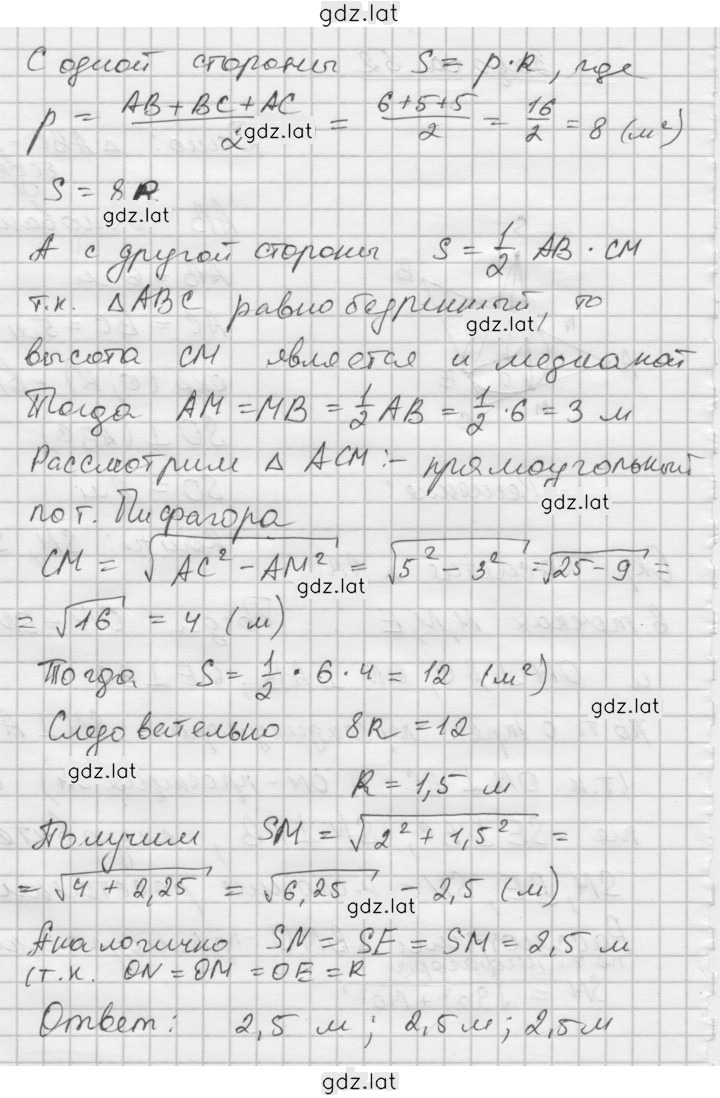 gdz.lat
С одной стороны S = p·R, где
p = (AB + BC + AC)/2 = (6+5+5)/2 = 16/2 = 8 (м²)
gdz.lat
S = 8R
gdz.lat
А с другой стороны S = 1/2 AB · CM
т.к. △ABC равнобедренный, то
gdz.lat
высота CM является и медианой
Тогда AM = MB = 1/2 AB = 1/2 · 6 = 3 м
Рассмотрим △ ACM :- прямоугольный
gdz.lat
по т. Пифагора
CM = √(AC² − AM²) = √(5² − 3²) = √(25 − 9) =
gdz.lat
= √16 = 4 (м)
Тогда S = 1/2 · 6 · 4 = 12 (м²)
gdz.lat
Следовательно 8R = 12
gdz.lat
R = 1,5 м
Получим SM = √(2² + 1,5²) =
= √(4 + 2,25) = √(6,25) − 2,5 (м)
gdz.lat
Аналогично SN = SE = SM = 2,5 м
(т.к. ON = OM = OE = R
Ответ: 2,5 м; 2,5м; 2,5м
gdz.lat